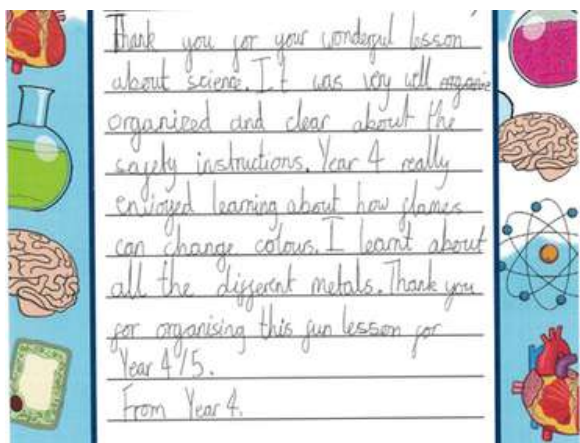 Thank you for your wonderful lesson
about science. It was very well
organized and clear about the
safety instructions. Year 4 really
enjoyed learning about how flames
can change colours. I learnt about
all the different metals. Thank you
for organising this fun lesson for
Year 4/5.
From Year 4.